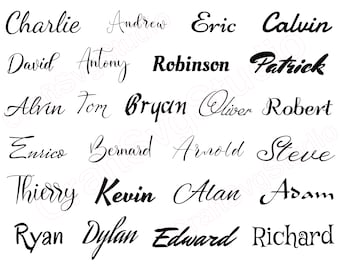 Charlie Andrew Eric Calvin
David Antony Robinson Patrick
Alvin Tom Bryan Oliver Robert
Enrico Bernard Arnold Steve
Thierry Kevin Alan Adam
Ryan Dylan Edward Richard